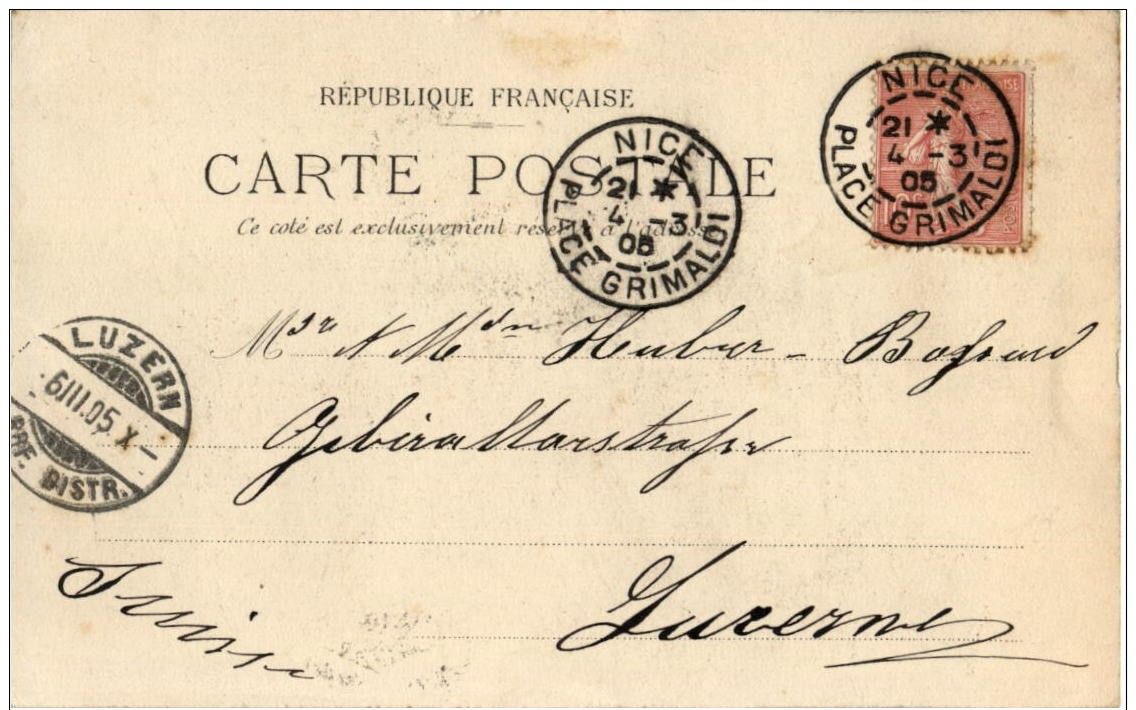 RÉPUBLIQUE FRANÇAISE
CARTE POSTALE
Ce coté est exclusivement réservé à l'adresse
NICE
21 *
4 -3
05
PLACE GRIMALDI
NICE
21 *
4 -3
05
PLACE GRIMALDI
LUZERN
6.III.05 X
BRF. DISTR.
Msr & Mdn Huber -
Gebiraltarstrasse
Luzerne
Suisse